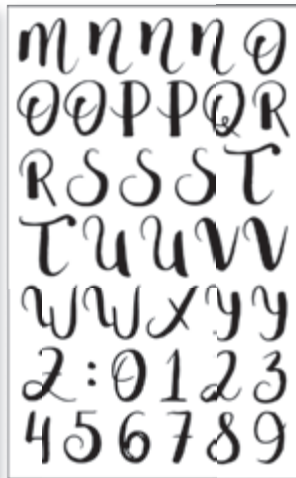 M N N N O
O O P P Q R
R S S S T
T U U V V
W W X Y Y
Z : 0 1 2 3
4 5 6 7 8 9